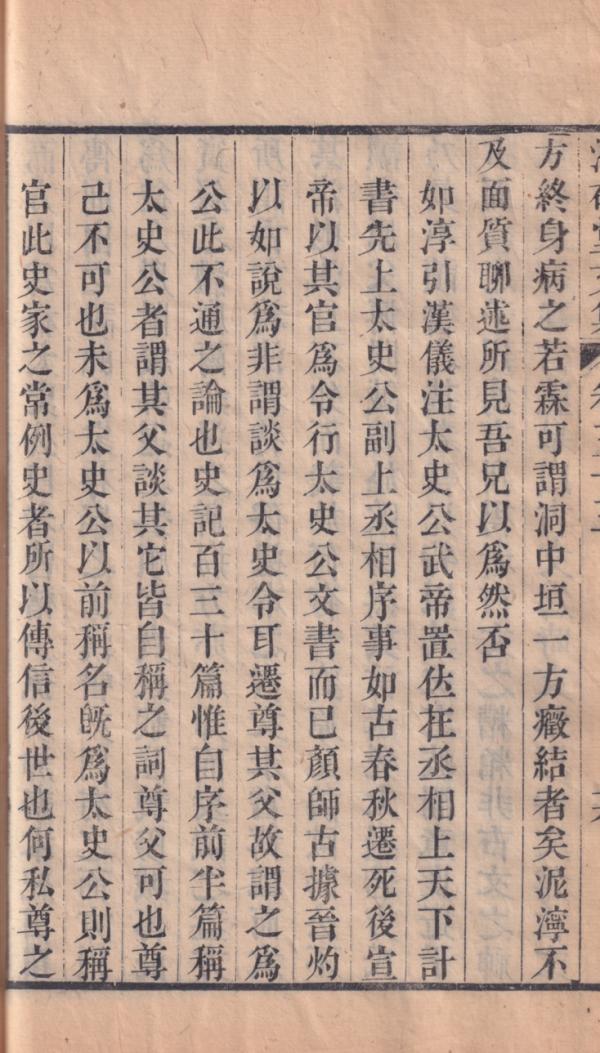 方終身病之若霖可謂洞中垣一方癥結者矣泥濘不
及面質聊述所見吾兄以爲然否
如淳引漢儀注太史公武帝置位在丞相上天下計
書先上太史公副上丞相序事如古春秋遷死後宣
帝以其官爲令行太史公文書而已顏師古據晉灼
以如說爲非謂談爲太史令耳遷尊其父故謂之爲
公此不通之論也史記百三十篇惟自序前半篇稱
太史公者謂其父談其它皆自稱之詞尊父可也尊
己不可也未爲太史公以前稱名旣爲太史公則稱
官此史家之常例史者所以傳信後世也何私尊之